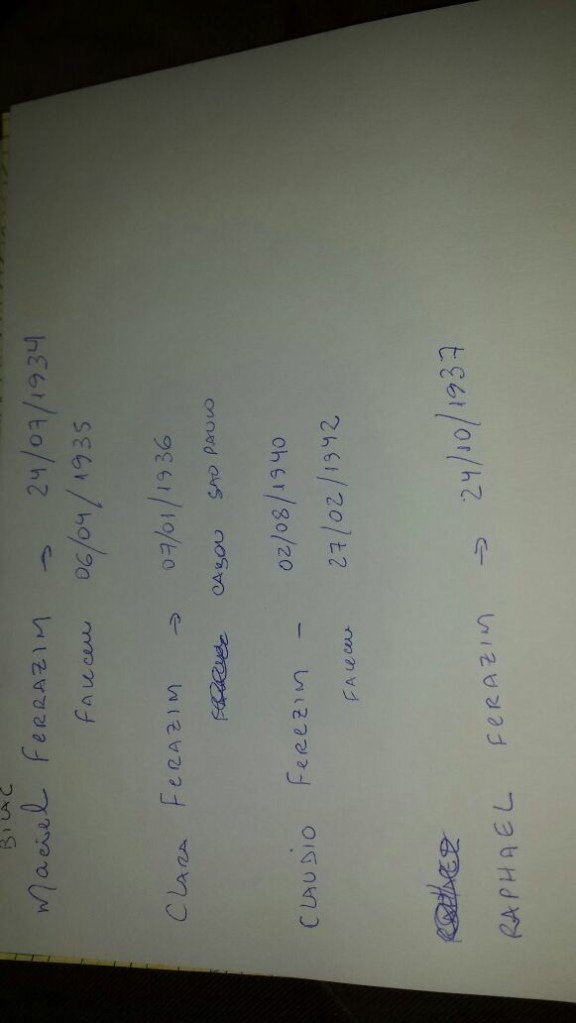 BILAC
Maciel FERRAZIM → 24/07/1934
FALECEU 06/04/1935
CLARA FERAZIM → 07/01/1936
CASOU SAO PAULO
CLAUDIO FEREZIM - 02/08/1940
FALECEU 27/02/1942
RAPHAEL FERAZIM → 24/10/1937